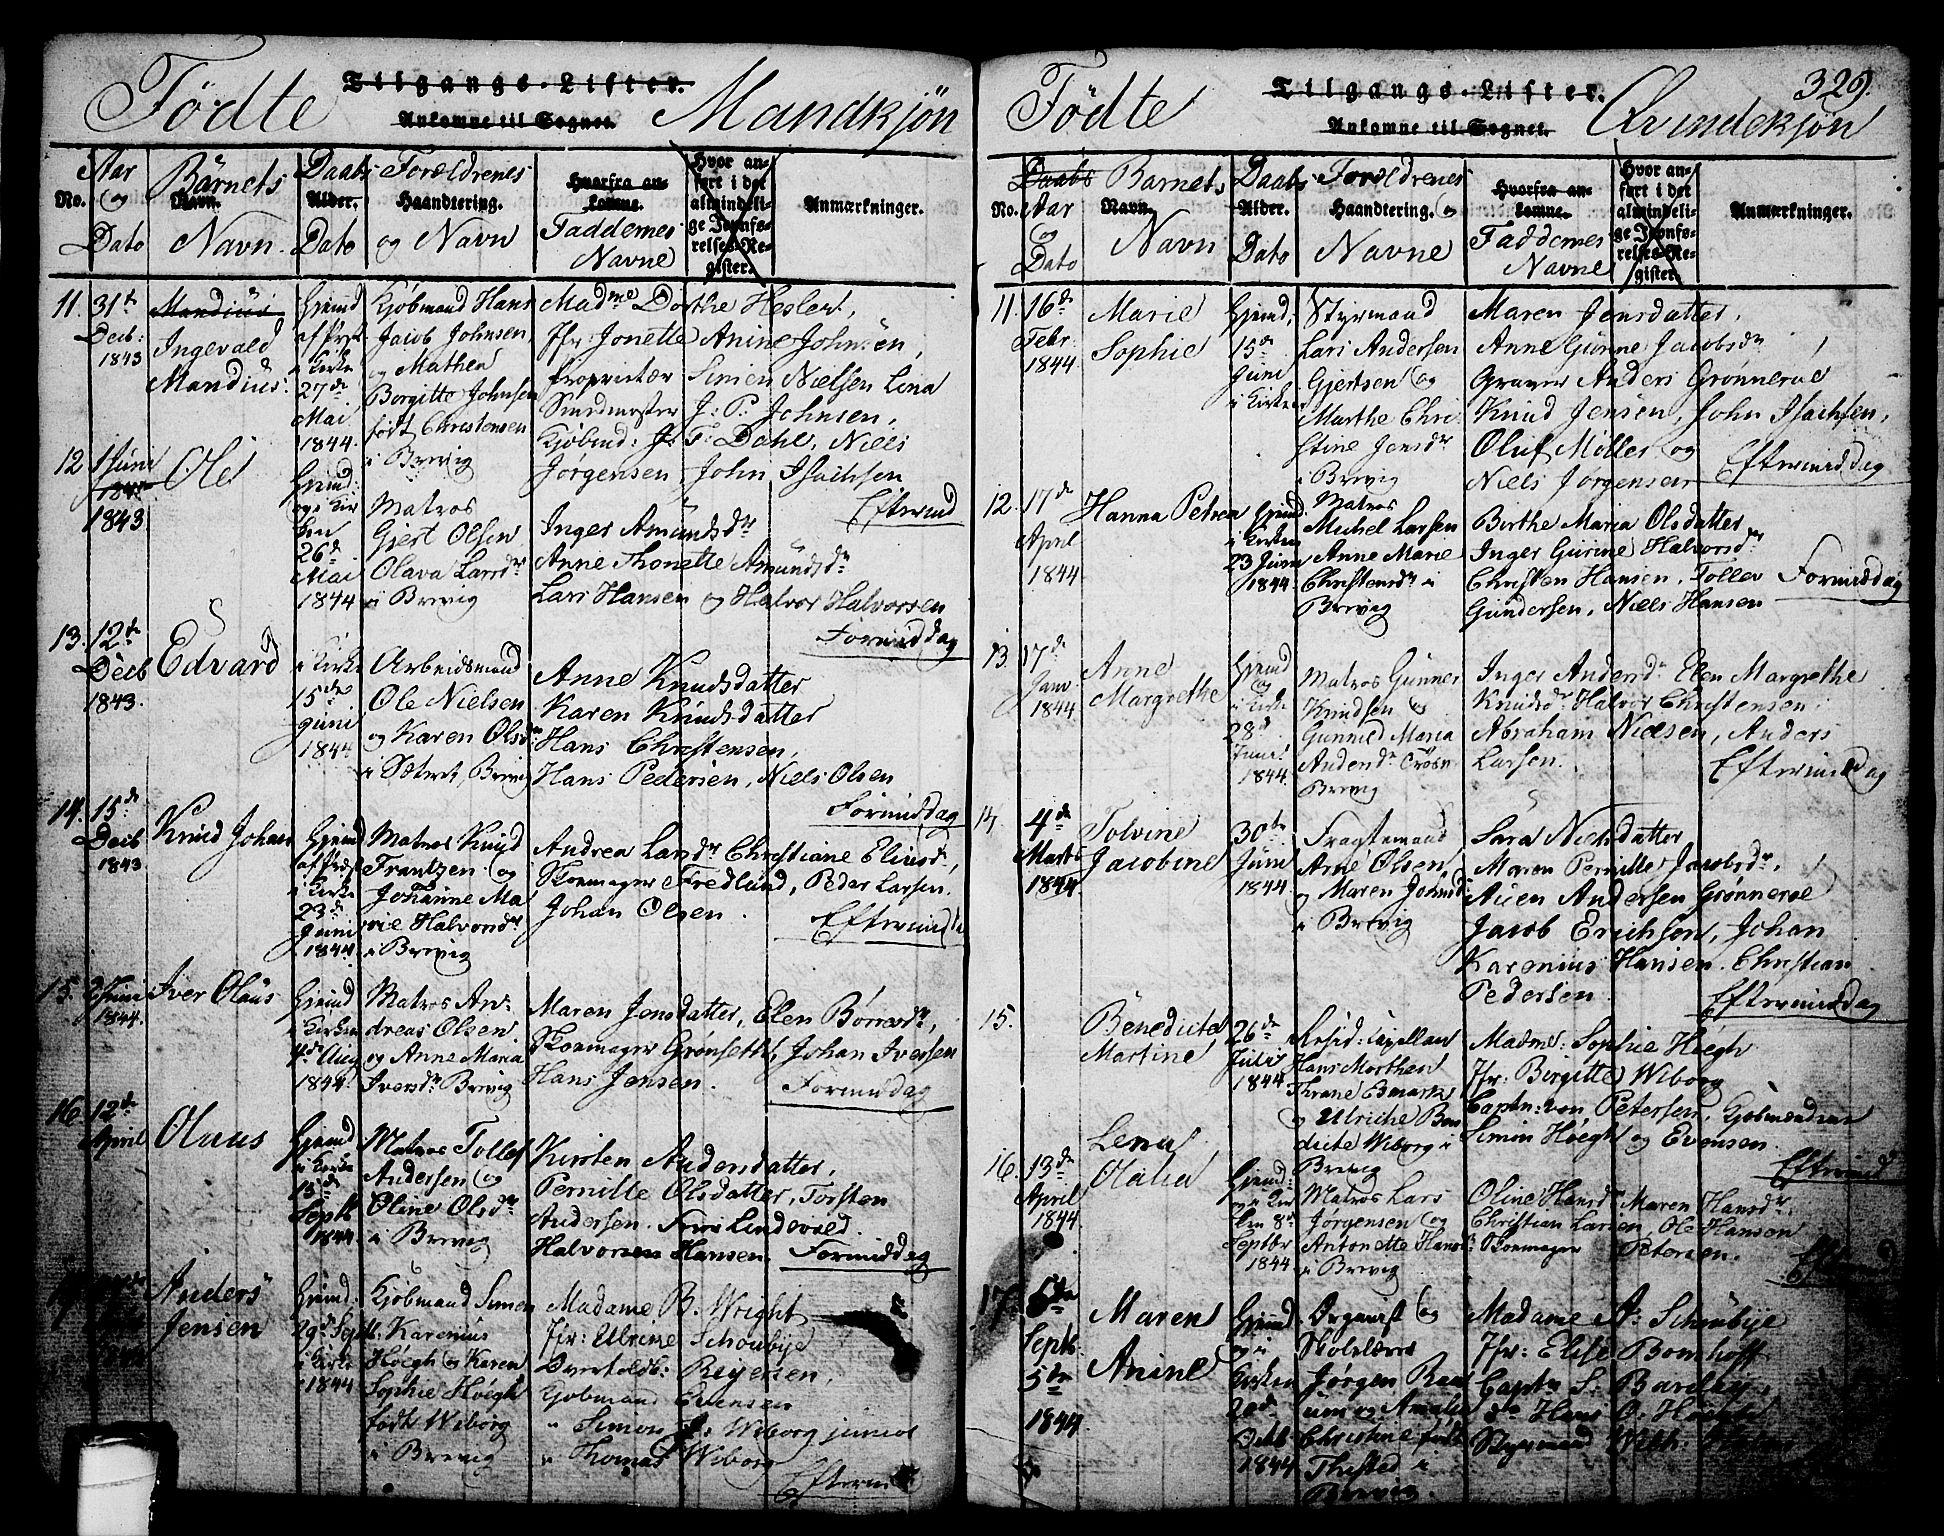 Fødte Tilgangs-Lister. Mandkjøn
Ankomne til Sognet.
No.
Aar og Dato
Barnets Navn.
Daabs Alder. Dato
Forældrenes Haandtering. og Navn
Hvorfra ankomne. Faddernes Navne
Hvor anført i det almindelige Jevnførelses-Register.
Anmærkninger.
11.
31te
Decb:
1843
Mandius
Ingevald
Mandius.
Hjemd
af Præst
i Kirke
27de
Mai
1844.
Kjøbmand Hans
Jacob Johnsen
og Mathea
Borgitte Johnsen
født Christensen
i Brevig
Madme Dorthe Hesler,
Jfr: Jonette Anine Johnsen,
Proprietær Simen Nielsen Lina
J: P: Johnsen,
Kjøbmd: Js F: Dahl, Niels
Jørgensen, John Isachsen
Eftermd
12
1 Juni
1844
1843
Ole
Hjemd:
og i Kir
ken
26de
Mai
1844
Matros
Gjert Olsen
Olava Larsdr
i Brevig
Inger Amundsdr
Anne Thonette Amundsdr
Lars Hansen og Halvor Halvorsen
Formiddag
13.
12te
Decb
1843.
Edvard
i Kirke
15de
Juni
1844
Arbeidsmand
Ole Nielsen
og Karen Olsdr
i Brevig
Anne Knudsdatter
Karen Knudsdatter
Hans Christensen,
Hans Pedersen, Niels Olsen
Formiddag
14.
15de
Decb
1843
Knud Johan
Hjemd
af Præst
i Kirke
23de
Juni
1844.
Matros Knud
Frantzen og
Johanne Ma
rie Halvorsdr
i Brevig
Andrea Larsdr Christiane Eliasd,
Skomager Fredlund, Peder Larsen,
Johan Olsen.
Eftermid
15.
2 Juni
1844.
Iver Olaus
Hjemd
i Kirken
4de Aug
1844.
Matros An-
dreas Olsen
og Anne Maria
Iversdr Brevig
Maren Jensdatter, Elen Børresdr,
Skomager Grønseth, Johan Iversen
Hans Jensen.
Formiddag
16.
12te
April
Olaus
Hjemd
i Kirke
15de
Septb
1844
Matros Tollef
Andersen og
Oline Olsdr
i Brevig
Kirsten Andersdatter,
Pernille Olsdatter, Torsten
Andersen. Lindvold.
Halvorsen Hansen. Formiddag
Anders
Jensen
Hjemd.
29de Septb
i Kirke
1844
Kjøbmand Simon
Karenius
Høegh og Karen
Sophie Høegh
født Wiborg
i Brevig
Madame B. Wright
Jfr: Ulrine Schoubye
Overtoldb: Regersen,
Kjøbmand Evensen
" Simon J: Wiborg junior
" Thomas Wiborg
Efterm
Fødte Tilgangs-Lister. Qvindekjøn
Ankomne til Sognet.
329.
No.
Daabs Aar og Dato
Barnets Navn. Navn
Daabs Alder. Dato
Forældrenes Haandtering. og Navne
Hvorfra ankomne. Faddernes Navne
Hvor anført i det almindelige Jevnførelses-Register.
Anmærkninger.
11.
16de
Febr.
1844
Marie
Sophie
Hjemd,
15de
Juni
i Kirken
Styrmand
Lars Andersen
Gjertsen og
Marthe Chri
stine Jensdr
i Brevig
Maren Jensdatter,
Anne Gunne Jacobsdr
Graver Anders Grønnerøe
Knud Jensen, John Isachsen,
Oluf Møller og
Niels Jørgensen
Eftermiddag
12.
17de
April
1844
Hanna Petrea
Hjemd.
i Kirken
23 Juni
1844
Matros
Michel Larsen
Anne Marie
Christensdr i
Brevig
Birthe Maria Olsdatter
Inger Gurine Halvorsdr
Christen Hansen, Tollev
Gundersen, Niels Hansen
Formiddag
13.
17de
Janv
1844
Anne
Margrethe
Hjemd
og
i Kirke
28de
Juni
1844
Matros Gunner
Knudsen og
Gunnild Maria
Andersdr
Brevig
Inger Andersdr Elen Margrethe
Knudsdr Halvor Christensen,
Abraham Nielsen, Anders
Larsen.
Eftermiddag
14
4de
Marts
1844
Tolvine
Jacobine
30te
Juni
1844
Fragtemand
Arne Olsen
og Maren Johnsd
i Brevig
Sara Nielsdatter
Maren Pernille Jacobsdr
Auen Andersen Grønnerøe
Jacob Erichsen, Johan
Karenius Hansen. Christian
Pedersen.
Eftermiddag
15.
Benedicte
Martine
26de
Juli
1844
Resid: Capellan
Hans Morthen
Thrane Esmark
og Ulriche Ben
dicte Wiborg i
Brevig
Madme: Sophie Høegh
Jfr: Birgitte Wiborg
Captn: von Petersen, Kjøbmændene
Simon Høegh og Evensen.
Eftermid
16.
13de
April
1844
Lena
Olalia
Hjemd:
og i Kir
ken 8de
Septbr
1844
Matros Lars
Jørgensen og
Antonette Hansd
i Brevig
Oline Hansdr Maren Hansdr,
Christian Larsen, Ole Hansen
Skomager Petersen.
Eftermd
17.
Septb.
1844
Maren
Anine
Hjemd
og i
Kirken
20de
Octb
1844
Organist og
Skolelærer
Jørgen Ras
mussen og Amalia
Christine født
Thisted i
Brevig.
Madame A: Schoubye
Jfr: Elise Bomhoff
Captn S: Barclay,
do Hans O. Høegh
Styrmand Wilh: